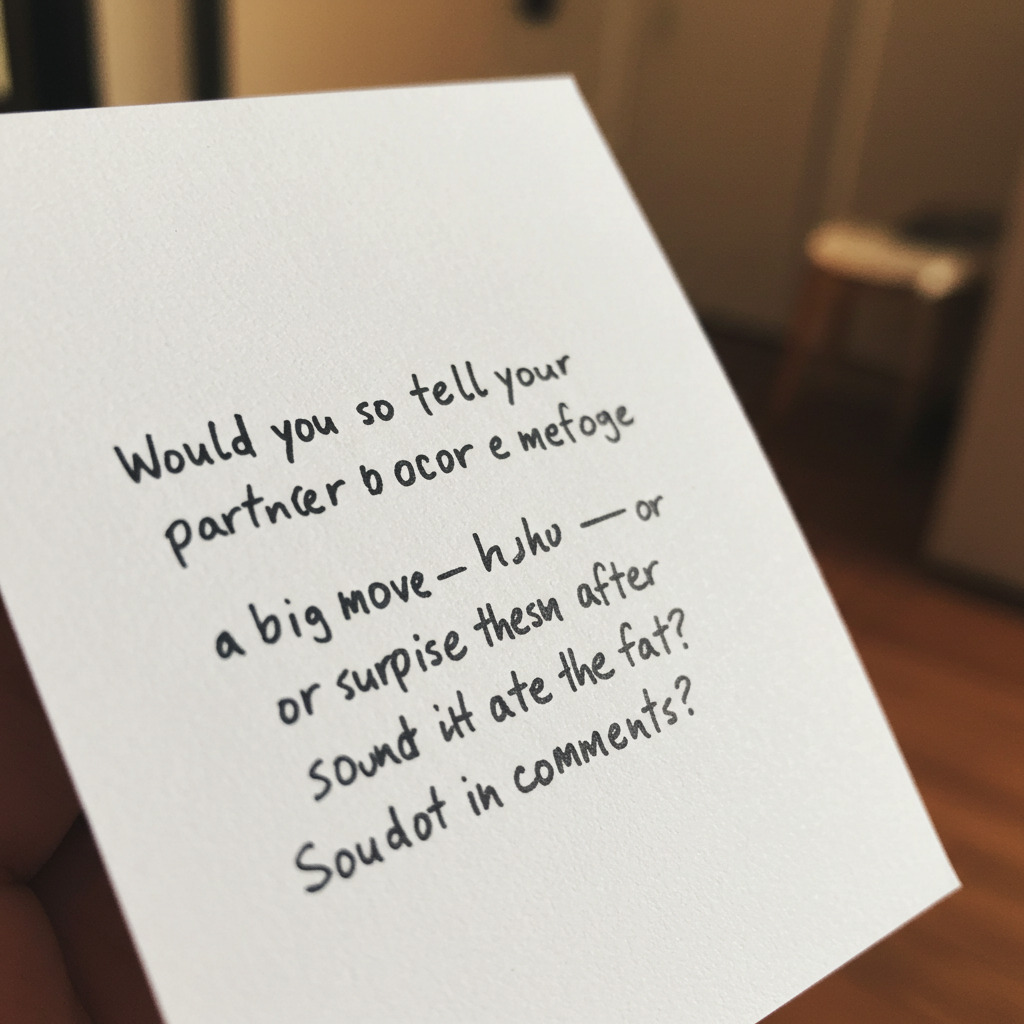 Would you so tell your
partncer b ocor e mefoge
a big move — hjhu — or
or surpise thesn after
sound itt ate the fat?
Soudot in comments?